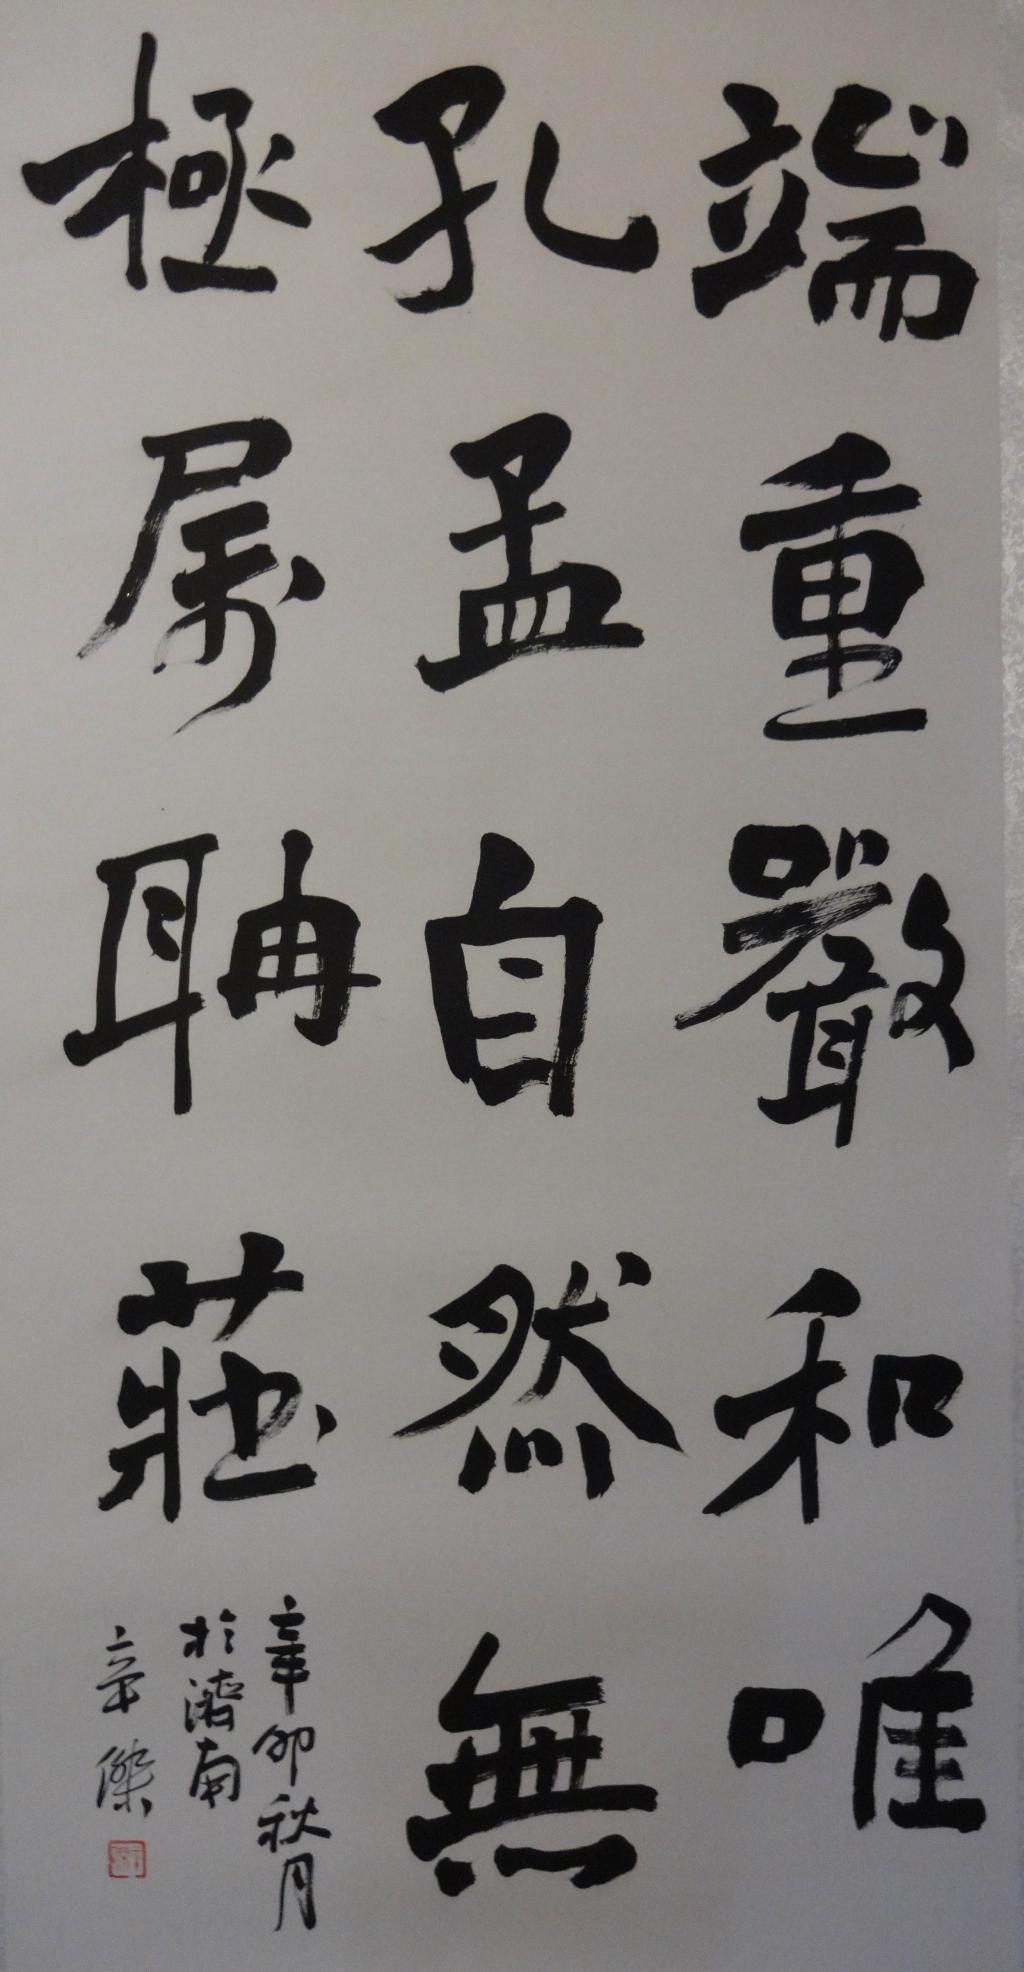 端重嚴和唯
孔孟自然無
極屬聃莊
辛卯秋月
於濟南
辛傑